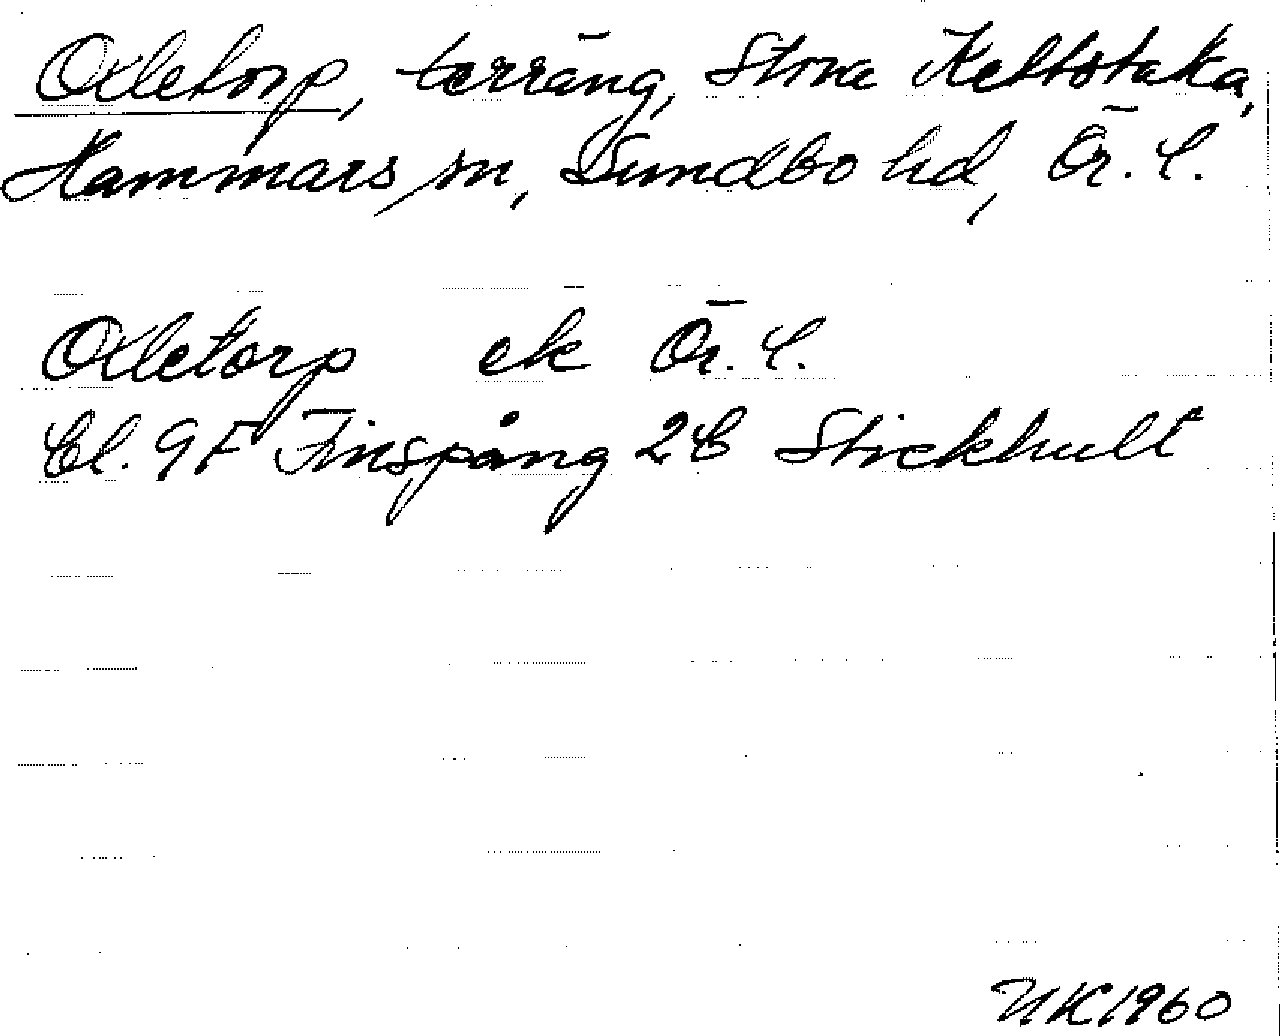 Oxletorp, terräng, Stora Keltstaka,
Hammars sn, Sundbo hd, Ör. l.
Oxletorp ek Ör. l.
Bl. 9F Finspång 2b Stickhult
UK1960